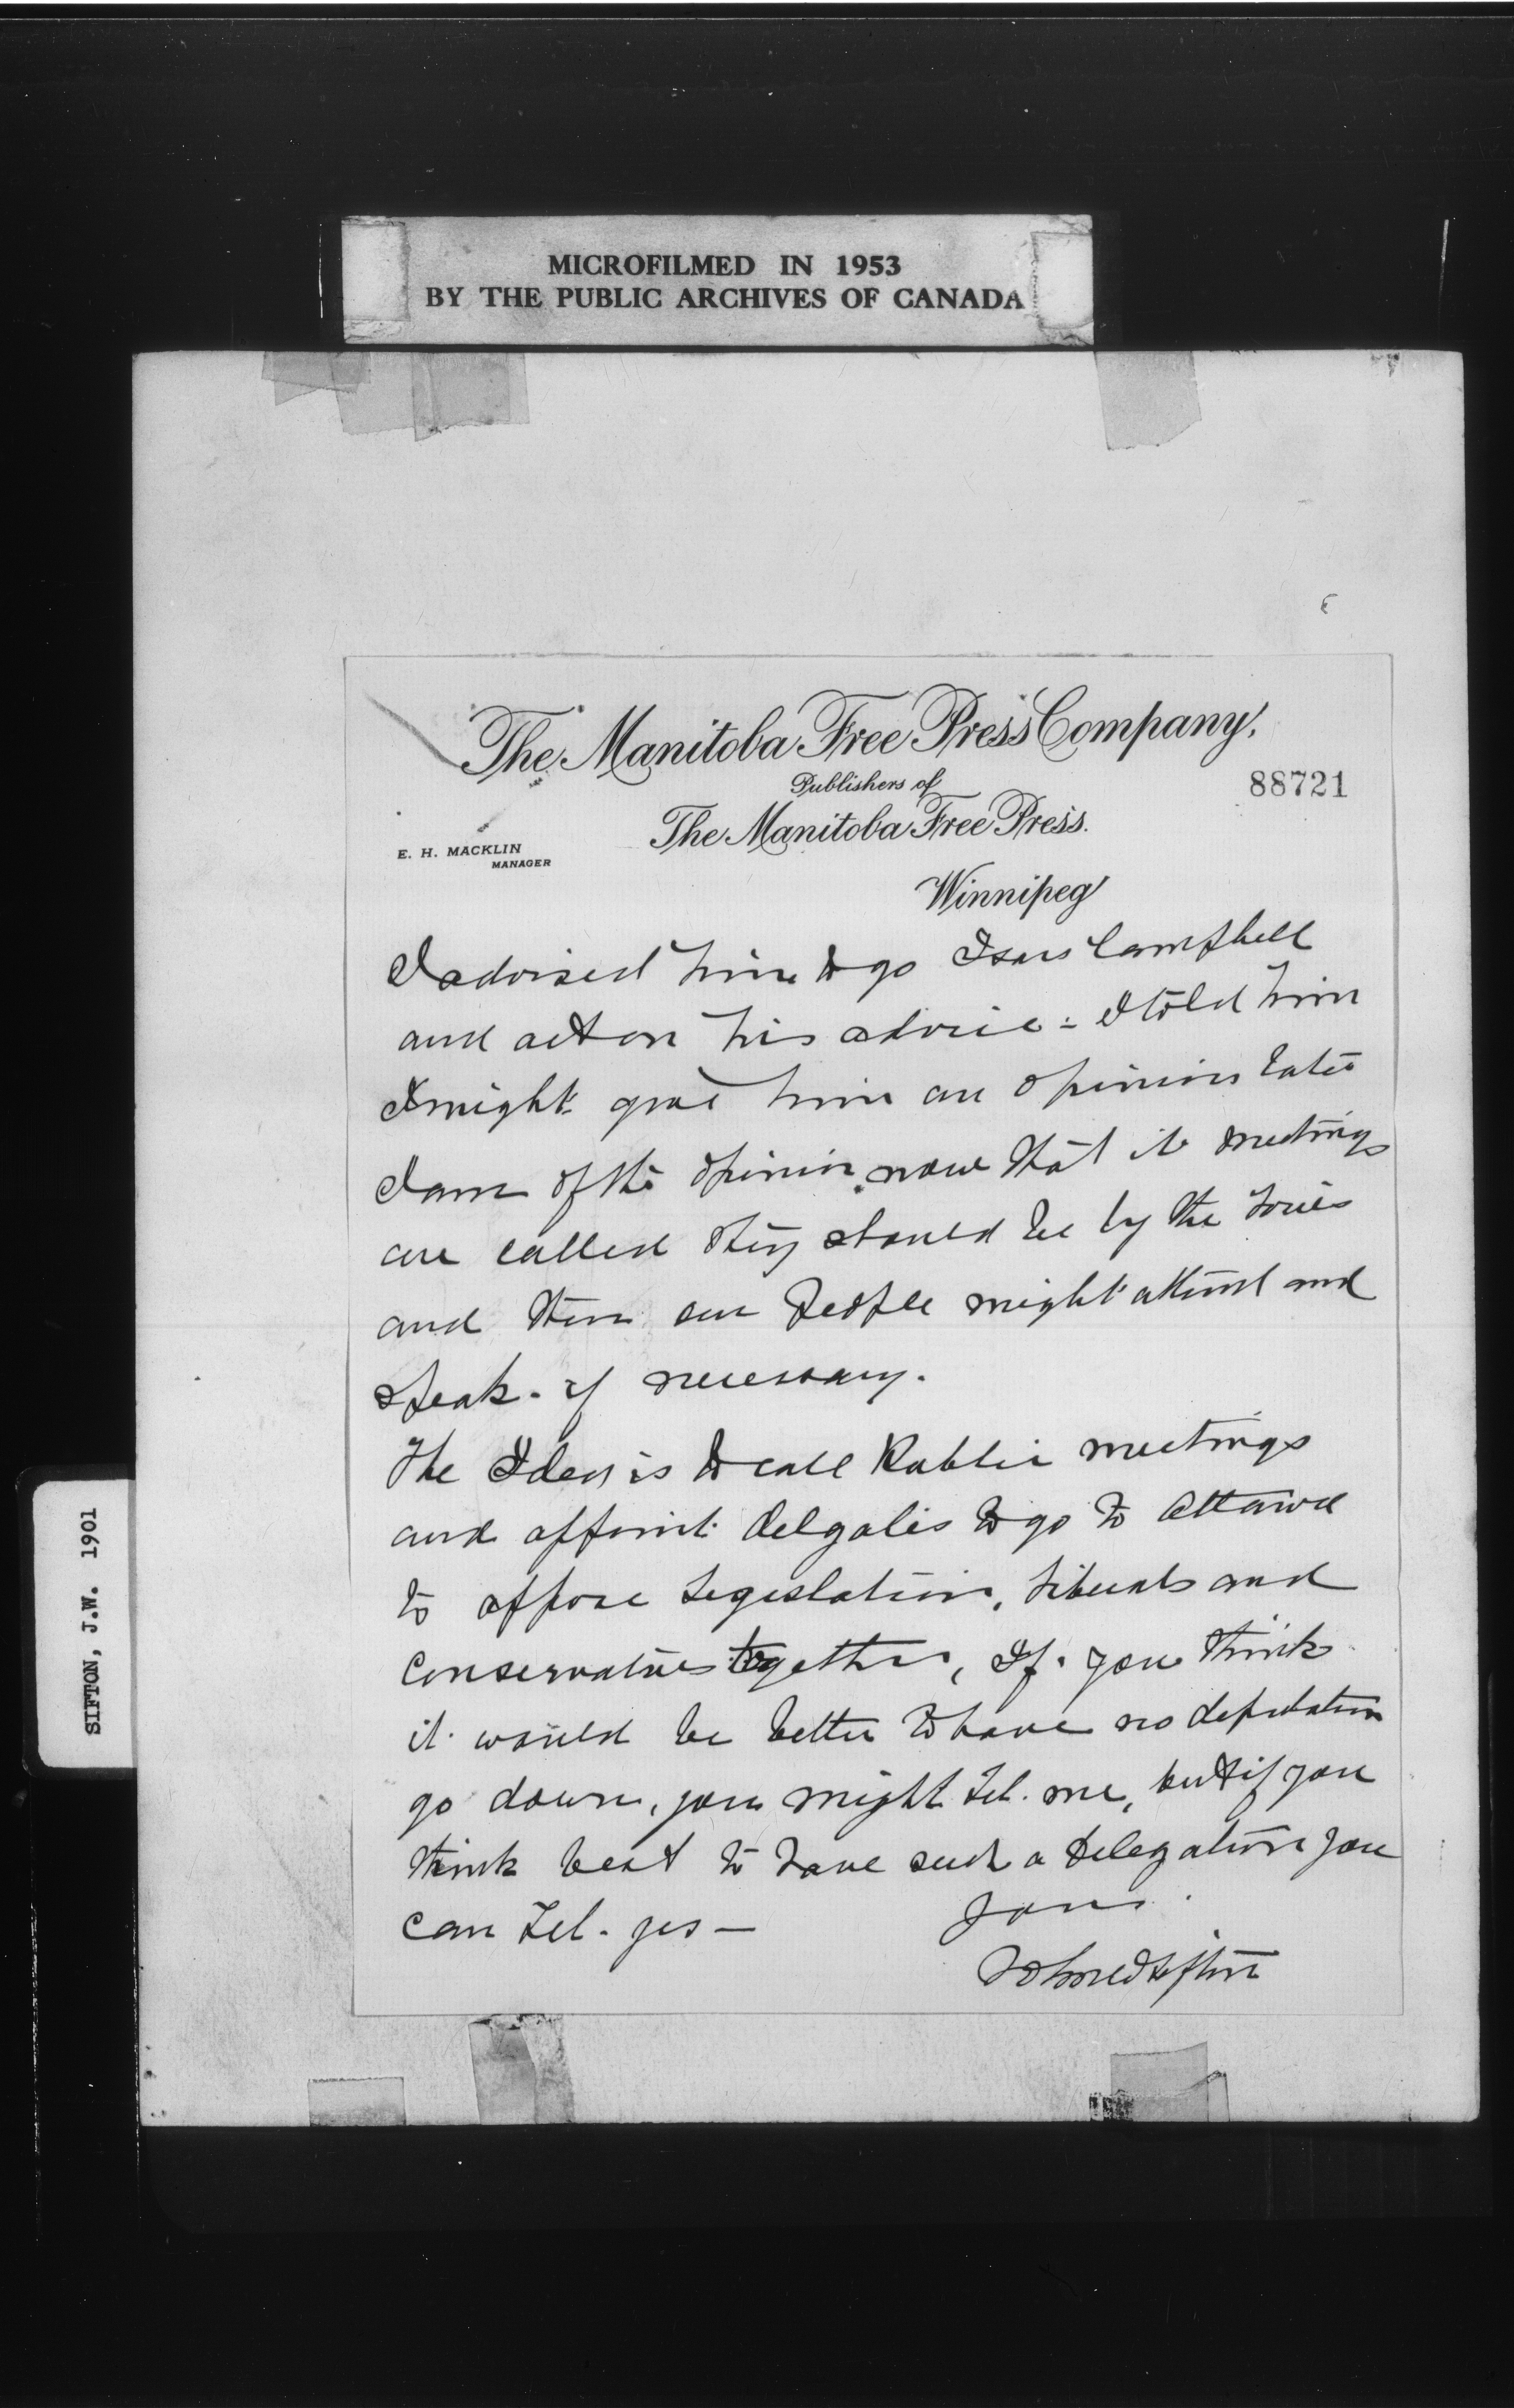 MICROFILMED IN 1953
BY THE PUBLIC ARCHIVES OF CANADA
SIFTON, J.W. 1901
The Manitoba Free Press Company,
Publishers of
88721
The Manitoba Free Press.
E. H. MACKLIN
MANAGER
Winnipeg
I advised him to go Isaac Campbell
and act on his advice - I told him
I might give him an opinion later
I am of the opinion now that if meetings
are called they should be by the Tories
and then our People might attend and
speak - if necessary.
The Idea is to call Public meetings
and appoint delgates to go to Ottawa
to oppose Legislation, Liberals and
Conservatives together, If you think
it would be better to have no deputation
go down, you might Tel. me, but if you
think best to have such a Delegation you
can Tel. yes —
Yours
John W Sifton